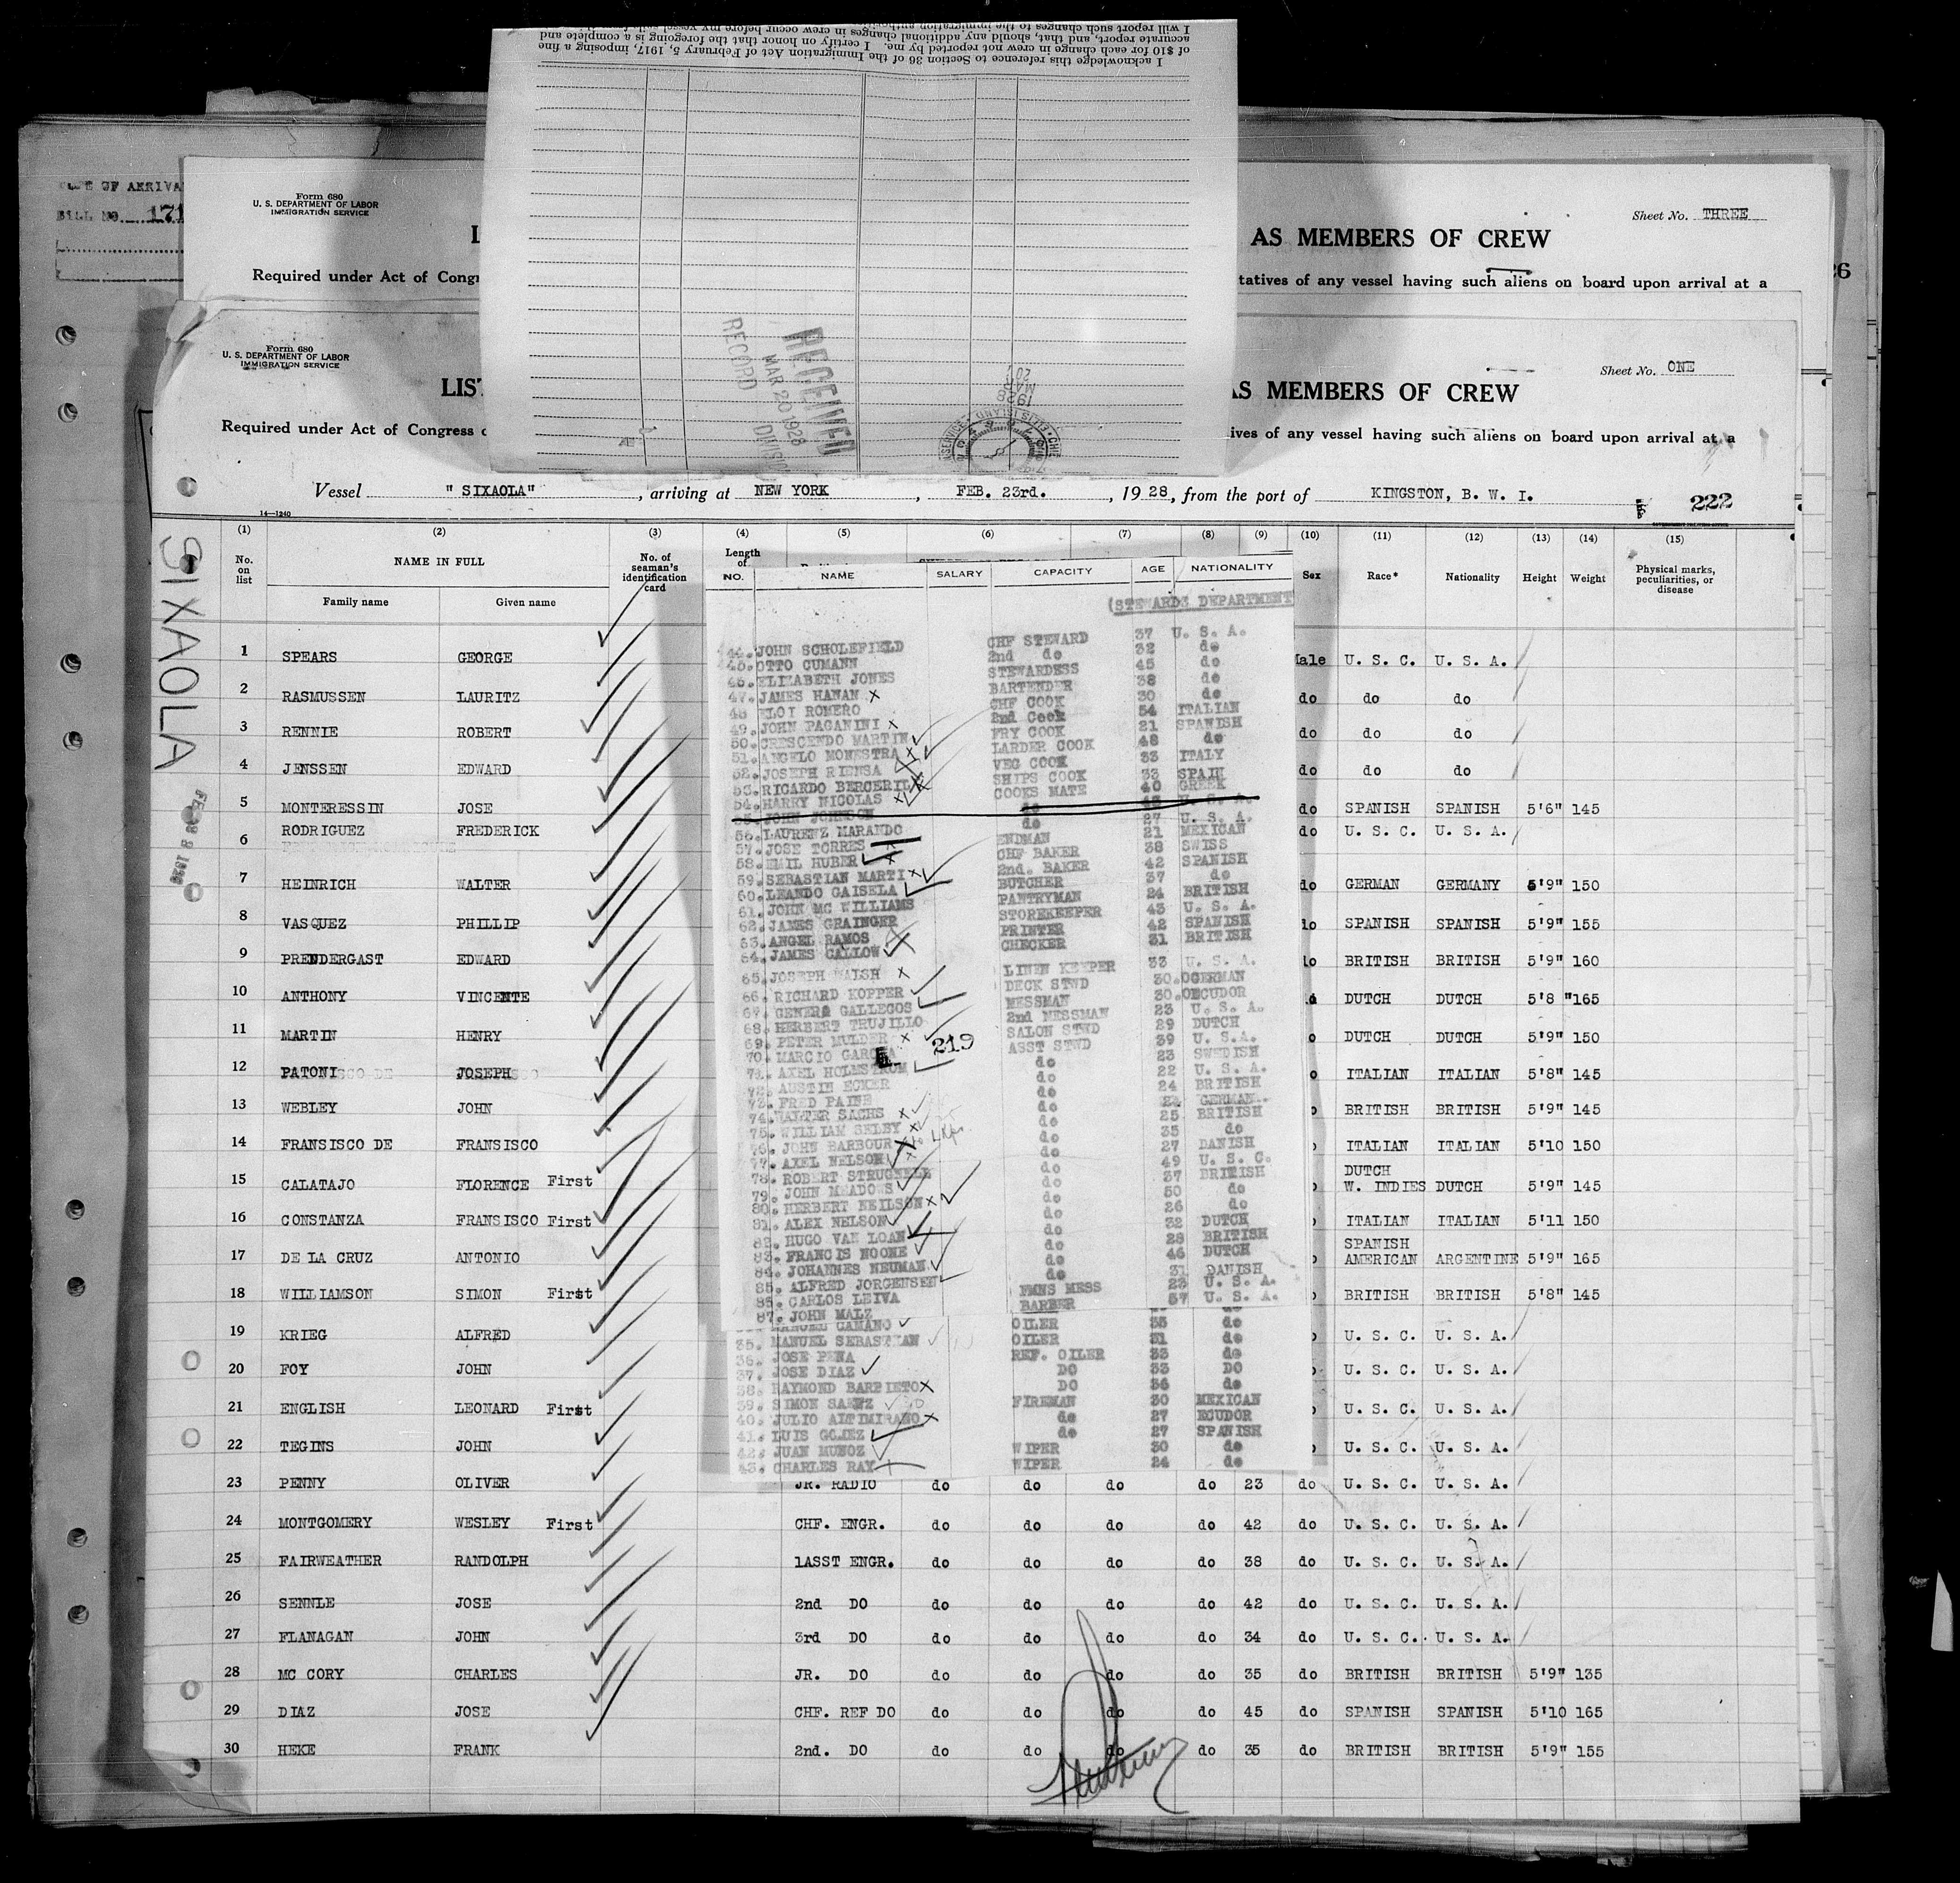 I acknowledge this reference to Section 36 of the Immigration Act of February 5, 1917, imposing a fine
of $10 for each change in crew not reported by me. I certify on honor that the foregoing is a complete and
accurate report, and that, should any additional changes in crew occur before my vessel
I will report such changes to the immigration
RECEIVED
MAR 20 1928
RECORD DIVISION
1928
MAR
20
OF ARRIVA
BILL NO. 171
Form 680
U. S. DEPARTMENT OF LABOR
IMMIGRATION SERVICE
Sheet No. THREE
AS MEMBERS OF CREW
Required under Act of Congr
tatives of any vessel having such aliens on board upon arrival at a
26
Form 680
U. S. DEPARTMENT OF LABOR
IMMIGRATION SERVICE
Sheet No. ONE
LIST AS MEMBERS OF CREW
Required under Act of Congress
ives of any vessel having such aliens on board upon arrival at a
Vessel "SIXAOLA", arriving at NEW YORK, FEB. 23rd., 1928, from the port of KINGSTON, B. W. I.
222
14—1240
SIXAOLA
(1) (2) (3) (4) (5) (6) (7) (8) (9) (10) (11) (12) (13) (14) (15)
No. on list NAME IN FULL No. of seaman's identification card Length of Sex Race* Nationality Height Weight Physical marks, peculiarities, or disease
Family name Given name
1 SPEARS GEORGE Male U. S. C. U. S. A.
2 RASMUSSEN LAURITZ do do do
3 RENNIE ROBERT do do do
4 JENSSEN EDWARD do do do
5 MONTERESSIN JOSE do SPANISH SPANISH 5'6" 145
6 RODRIGUEZ FREDERICK do U. S. C. U. S. A.
7 HEINRICH WALTER do GERMAN GERMANY 5'9" 150
8 VASQUEZ PHILLIP do SPANISH SPANISH 5'9" 155
9 PRENDERGAST EDWARD do BRITISH BRITISH 5'9" 160
10 ANTHONY VINCENTE DUTCH DUTCH 5'8" 165
11 MARTIN HENRY DUTCH DUTCH 5'9" 150
12 PATONI JOSEPH ITALIAN ITALIAN 5'8" 145
13 WEBLEY JOHN BRITISH BRITISH 5'9" 145
14 FRANSISCO DE FRANSISCO ITALIAN ITALIAN 5'10 150
15 CALATAJO FLORENCE First DUTCH W. INDIES DUTCH 5'9" 145
16 CONSTANZA FRANSISCO First ITALIAN ITALIAN 5'11 150
17 DE LA CRUZ ANTONIO SPANISH AMERICAN ARGENTINE 5'9" 165
18 WILLIAMSON SIMON First BRITISH BRITISH 5'8" 145
19 KRIEG ALFRED U. S. C. U. S. A.
20 FOY JOHN U. S. C. U. S. A.
21 ENGLISH LEONARD First U. S. C. U. S. A.
22 TEGINS JOHN U. S. C. U. S. A.
23 PENNY OLIVER JR. RADIO do do do do 23 do U. S. C. U. S. A.
24 MONTGOMERY WESLEY First CHF. ENGR. do do do do 42 do U. S. C. U. S. A.
25 FAIRWEATHER RANDOLPH 1ASST ENGR. do do do do 38 do U. S. C. U. S. A.
26 SENNLE JOSE 2nd DO do do do do 42 do U. S. C. U. S. A.
27 FLANAGAN JOHN 3rd DO do do do do 34 do U. S. C. U. S. A.
28 MC CORY CHARLES JR. DO do do do do 35 do BRITISH BRITISH 5'9" 135
29 DIAZ JOSE CHF. REF DO do do do do 45 do SPANISH SPANISH 5'10 165
30 HEKE FRANK 2nd. DO do do do do 35 do BRITISH BRITISH 5'9" 155
NO. NAME SALARY CAPACITY AGE NATIONALITY
(STEWARDS DEPARTMENT
44. JOHN SCHOLEFIELD CHF STEWARD 37 U. S. A.
45. OTTO CUMANN 2nd do 32 do
46. ELIZABETH JONES STEWARDESS 45 do
47. JAMES HANAN BARTENDER 38 do
48 ELOI ROMERO CHF COOK 30 do
49. JOHN PAGANINI 2nd Cook 54 ITALIAN
50. CRESCENDO MARTIN FRY COOK 21 SPANISH
51. ANGELO MONESTRA LARDER COOK 48 do
52. JOSEPH RIENSA VEG COOK 33 ITALY
53. RICARDO BERCERIL SHIPS COOK 33 SPAIN
54. HARRY NICOLAS COOKS MATE 40 GREEK
55. JOHN JOHNSON do U. S. A.
56. LAURENZ MARANDO do 27 U. S. A.
57. JOSE TORRES ENDMAN 21 MEXICAN
58. EMIL HUBER CHF BAKER 38 SWISS
59. SEBASTIAN MARTI 2nd. BAKER 42 SPANISH
60. LEANDO GAISELA BUTCHER 37 do
61. JOHN MC WILLIAMS PANTRYMAN 24 BRITISH
62. JAMES GRAINGER STOREKEEPER 43 U. S. A.
63. ANGEL RAMOS PRINTER 42 SPANISH
64. JAMES CALLOW CHECKER 31 BRITISH
65. JOSEPH WALSH LINEN KEEPER 33 U. S. A.
66. RICHARD KOPPER DECK STWD 30. GERMAN
67. GENERO GALLEGOS MESSMAN 30. ECUDOR
68. HERBERT TRUJILLO 2nd MESSMAN 23 U. S. A.
69. PETER MULDER SALON STWD 29 DUTCH
70. MARCIO GARCIA ASST STWD 39 U. S. A.
219
71. AXEL HOLMSTROM do 23 SWEDISH
72. AUSTIN ECKER do 22 U. S. A.
73. FRED PAINE do 24 BRITISH
74. WALTER SACHS do 22 GERMAN
75. WILLIAM SELBY do 25 BRITISH
76. JOHN BARBOUR do 35 do
77. AXEL NELSON do 27 DANISH
78. ROBERT STRUGNELL do 49 U. S. C.
79. JOHN MEADOWS do 37 BRITISH
80. HERBERT NEILSON do 50 do
81. ALEX NELSON do 26 do
82. HUGO VAN LOAN do 32 DUTCH
83. FRANCIS NOONE do 28 BRITISH
84. JOHANNES NEUMAN do 46 DUTCH
85. ALFRED JORGENSEN do 31 DANISH
86. CARLOS LEIVA FMNS MESS 23 U. S. A.
87. JOHN MALZ BARBER 57 U. S. A.
MANUEL CAMANO OILER 35 do
35. MANUEL SEBASTIAN OILER 31 do
36. JOSE PENA REF. OILER 33 do
37. JOSE DIAZ DO 33 DO
38. RAYMOND BARBIETO DO 36 do
39. SIMON SAENZ FIREMAN 30 MEXICAN
40. JULIO ALTIMIRANO do 27 ECUDOR
41. LUIS GOMEZ do 27 SPANISH
42. JUAN MUNOZ WIPER 30 do
43. CHARLES RAY WIPER 24 do